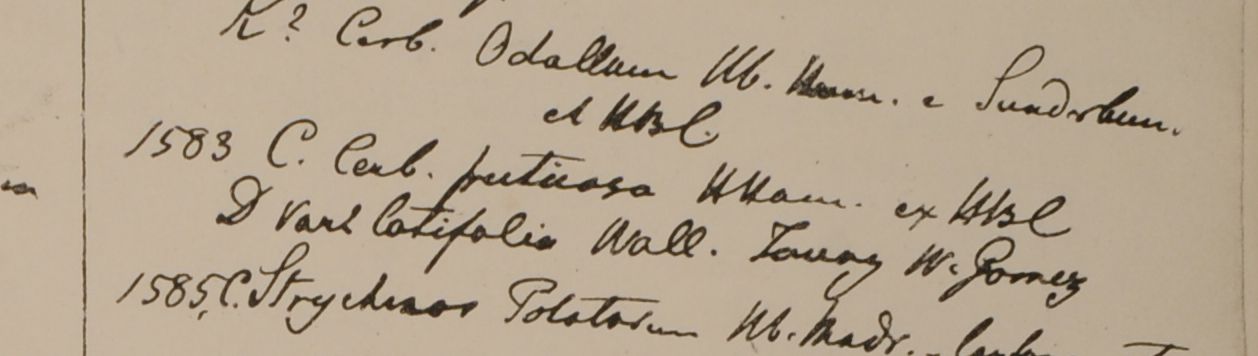 K? Cerb. Odallam Hb. Ham. e Sundrbun.
et HBC.
1583 C. Cerb. fruticosa HHam. ex HBC
D var? latifolia Wall. Tavoy W. Gomez
1585, C. Strychnos Potatorum Hb. Madr.